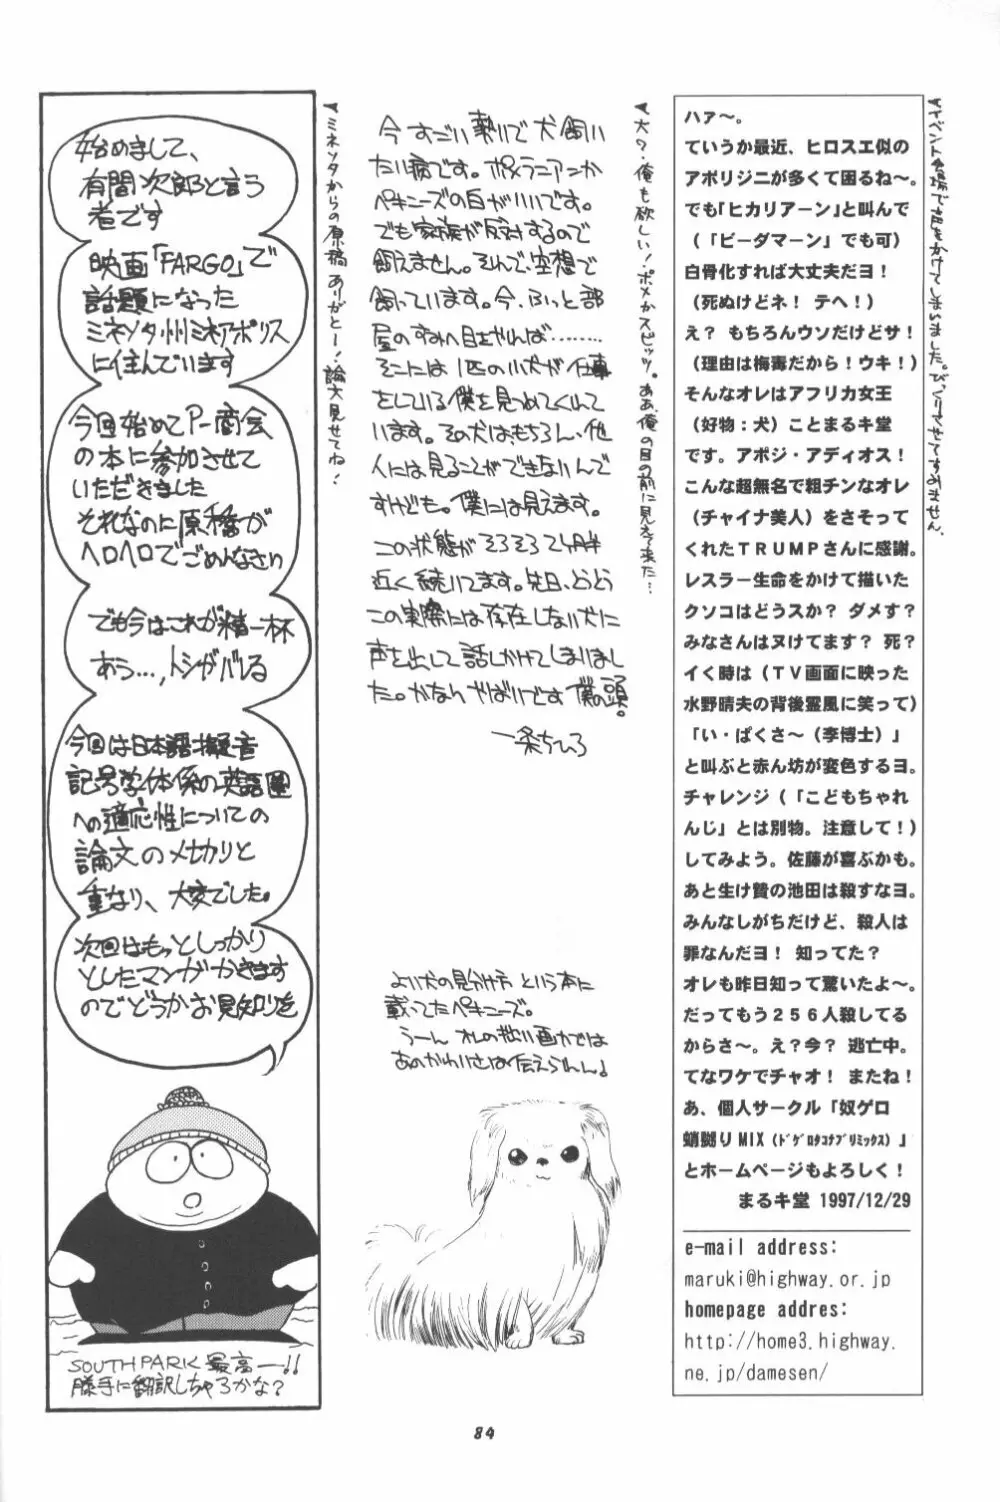 ハァ〜。
ていうか最近、ヒロスエ似の
アボリジニが多くて困るね〜。
でも「ヒカリアーン」と叫んで
（「ビーダマーン」でも可）
白骨化すれば大丈夫だヨ！
（死ぬけどネ！ テヘ！）
え？ もちろんウソだけどサ！
（理由は梅毒だから！ウキ！）
そんなオレはアフリカ女王
（好物：犬）ことまるキ堂
です。アポジ・アディオス！
こんな超無名で粗チンなオレ
（チャイナ美人）をさそって
くれたＴＲＵＭＰさんに感謝。
レスラー生命をかけて描いた
クソコはどうスか？ ダメす？
みなさんはヌけてます？ 死？
イく時は（ＴＶ画面に映った
水野晴夫の背後霊風に笑って）
「い・ぱくさ〜（李博士）」
と叫ぶと赤ん坊が変色するヨ。
チャレンジ（「こどもちゃれ
んじ」とは別物。注意して！）
してみよう。佐藤が喜ぶかも。
あと生け贄の池田は殺すなヨ。
みんなしがちだけど、殺人は
罪なんだヨ！ 知ってた？
オレも昨日知って驚いたよ〜。
だってもう２５６人殺してる
からさ〜。え？今？ 逃亡中。
てなワケでチャオ！ またね！
あ、個人サークル「奴ゲロ
蛸嬲りMIX（ﾄﾞｹﾞﾛﾀｺﾅﾌﾞﾘﾐｯｸｽ）」
とホームページもよろしく！
まるキ堂 1997/12/29
e-mail address:
maruki@highway.or.jp
homepage addres:
http://home3.highway.
ne.jp/damesen/
イベント会場で声をかけてしまいました。びっくりさせてすみません。
今すごい勢いで犬飼い
たい病です。ポメラニアンか
ペキニーズの白がいいです。
でも家族が反対するので
飼えません。そんで、空想で
飼っています。今、ふっと部
屋のすみへ目をやれば………
そこには1匹の小犬が仕事
をしている僕を見つめてくれて
います。その犬は、もちろん、他
人には見ることができないんで
すけども。僕には見えます。
この状態がそろそろ2ヶ月半
近く続いてます。先日、とうとう
この実際には存在しない犬に
声を出して話しかけてしまいまし
た。かなりやばいです 僕の頭。
一条ちひろ
よい犬の見分け方 という本に
載ってたペキニーズ。
うーん オレの拙い画力では
あのかわいさは伝えられん！
犬ク・俺も欲しい！ポメかスピッツ。ああ、俺の目の前に見えて来た…
始めまして、
有間次郎と言う
者です
映画「FARGO」で
話題になった
ミネソタ州ミネアポリス
に住んでいます
今回始めてP-商会
の本に参加させて
いただきました
それなのに原稿が
ヘロヘロでごめんなさい
でも今はこれが精一杯
あう…，トシがバレる
今回は日本語擬音
記号学体係の英語圏
への適応性についての
論文のメ切りと
重なり、大変でした。
次回はもっとしっかり
としたマンガかきます
のでどうかお見知りを
SOUTHPARK 最高ー!!
勝手に翻訳しちゃろかな？
ミネソタからの原稿ありがとー！論文見せてね！
84